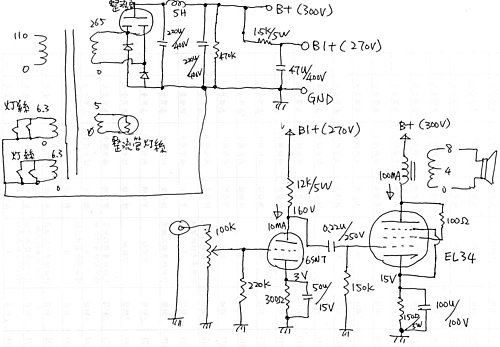 整流管
5H
B+(300V)
110
0
265
0
220u/400V
220u/400V
470K
1.5K/5W
B1+(270V)
47u/400V
GND
灯絲
6.3
0
灯絲
6.3
0
5
0
整流管灯絲
B1+(270V)
12K/5W
10mA
160V
6SN7
3V
300Ω
50u/15V
100K
220K
0.22u/250V
150K
B+(300V)
100mA
8
4
0
100Ω
EL34
15V
150Ω/5W
100u/100V